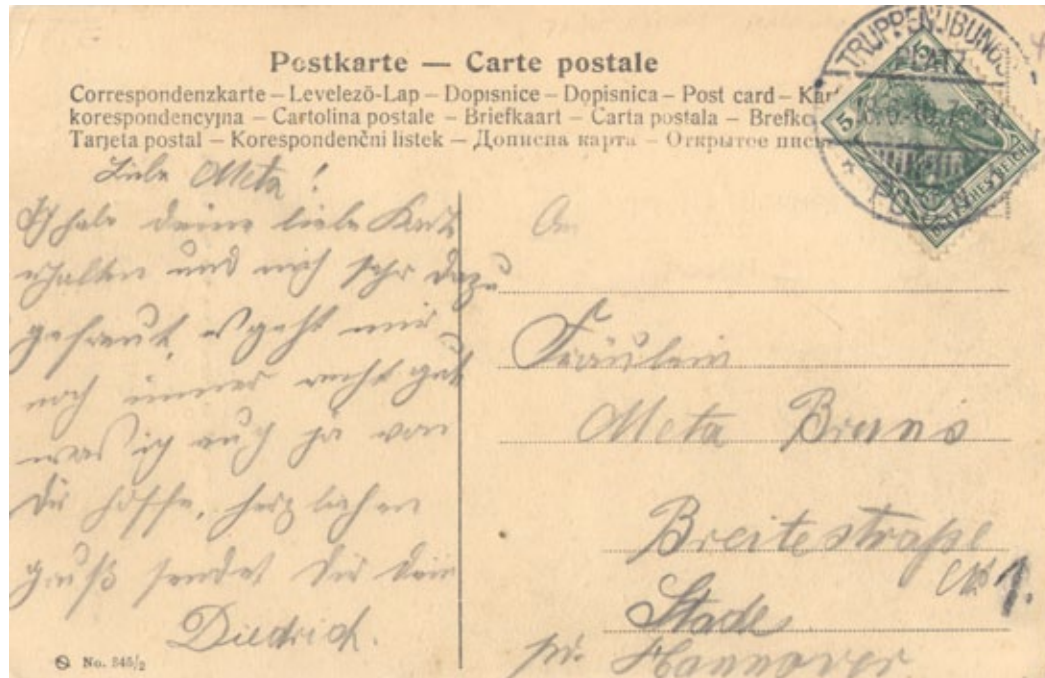 Postkarte — Carte postale
Correspondenzkarte – Levelező-Lap – Dopisnice – Dopisnica – Post card –
korespondencyjna – Cartolina postale – Briefkaart – Carta postala –
Tarjeta postal – Korespondenční listek – Дописна карта – Открытое
TRUPPENÜBUNGS
PLATZ
5
DEUTSCHES REICH
Liebe Meta!
Ich habe deine liebe Karte
erhalten und mich sehr dazu
gefreut, es geht mir
noch immer recht gut
was ich auch ja von
Dir hoffe, herzlichen
Gruß sendet Dir dein
Diedrich.
An
Fräulein
Meta Bruns
Breitestraße
No 1.
Stade
pr. Hannover
No. 345/2